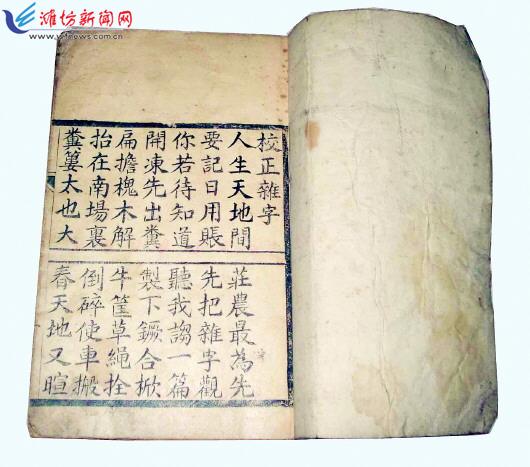 潍坊新闻网
www.wfnews.com.cn
校正雜字
人生天地間
莊農最為先
要記日用賬
先把雜字觀
你若待知道
聽我謅一篇
開凍先出糞
製下鐝合杴
扁擔槐木解
牛筐草繩拴
抬在南場裏
倒碎使車搬
糞簍太也大
春天地又暄